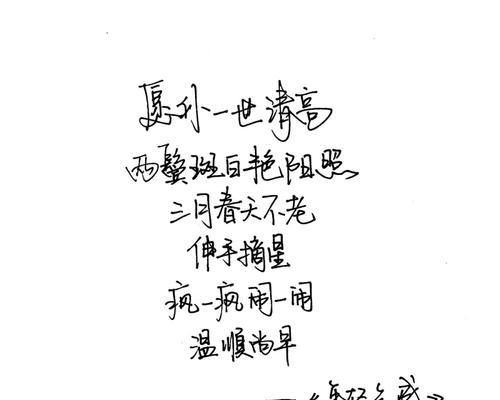 愿你一世清高
两鬓斑白艳阳照
三月春天不老
伸手摘星
疯一疯闹一闹
温顺尚早